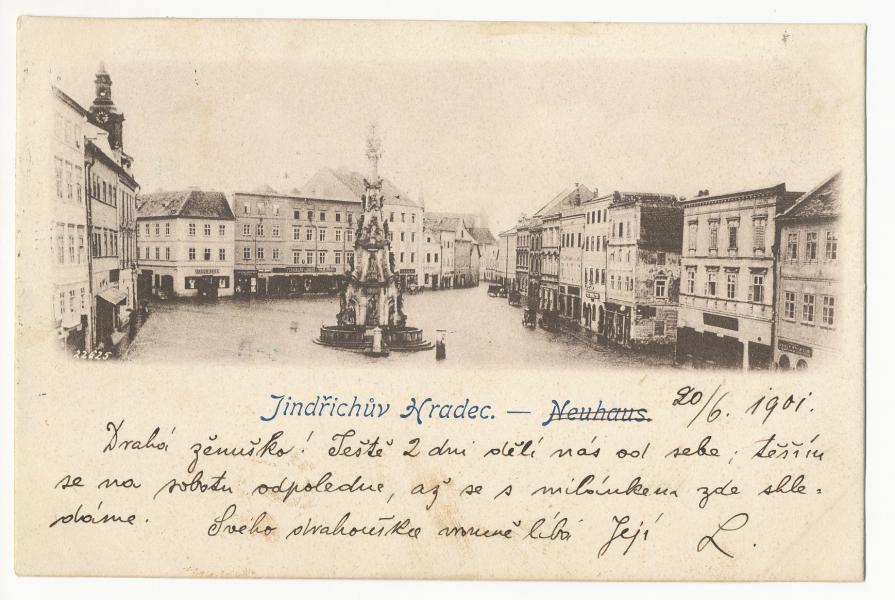 22625
Jindřichův Hradec. — Neuhaus. 20/6. 1901.
Drahá ženuško! Ještě 2 dni dělí nás od sebe; těším
se na sobotu odpoledne, až se s milánkem zde shle-
dáme. Svého drahouška vroucně líbá Její L.